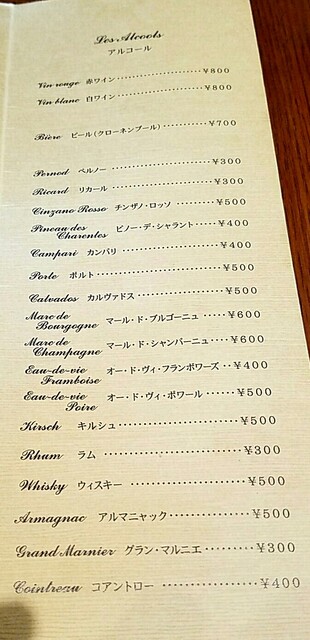 Les Alcools
アルコール
Vin rouge 赤ワイン ¥800
Vin blanc 白ワイン ¥800
Bière ビール(クローネンブール) ¥700
Pernod ペルノー ¥300
Ricard リカール ¥300
Cinzano Rosso チンザノ・ロッソ ¥500
Pineau des Charentes ピノー・デ・シャラント ¥400
Campari カンパリ ¥400
Porto ポルト ¥500
Calvados カルヴァドス ¥500
Marc de Bourgogne マール・ド・ブルゴーニュ ¥600
Marc de Champagne マール・ド・シャンパーニュ ¥600
Eau-de-vie Framboise オー・ド・ヴィ・フランボワーズ ¥400
Eau-de-vie Poire オー・ド・ヴィ・ポワール ¥500
Kirsch キルシュ ¥500
Rhum ラム ¥300
Whisky ウィスキー ¥500
Armagnac アルマニャック ¥500
Grand Marnier グラン・マルニエ ¥300
Cointreau コアントロー ¥400